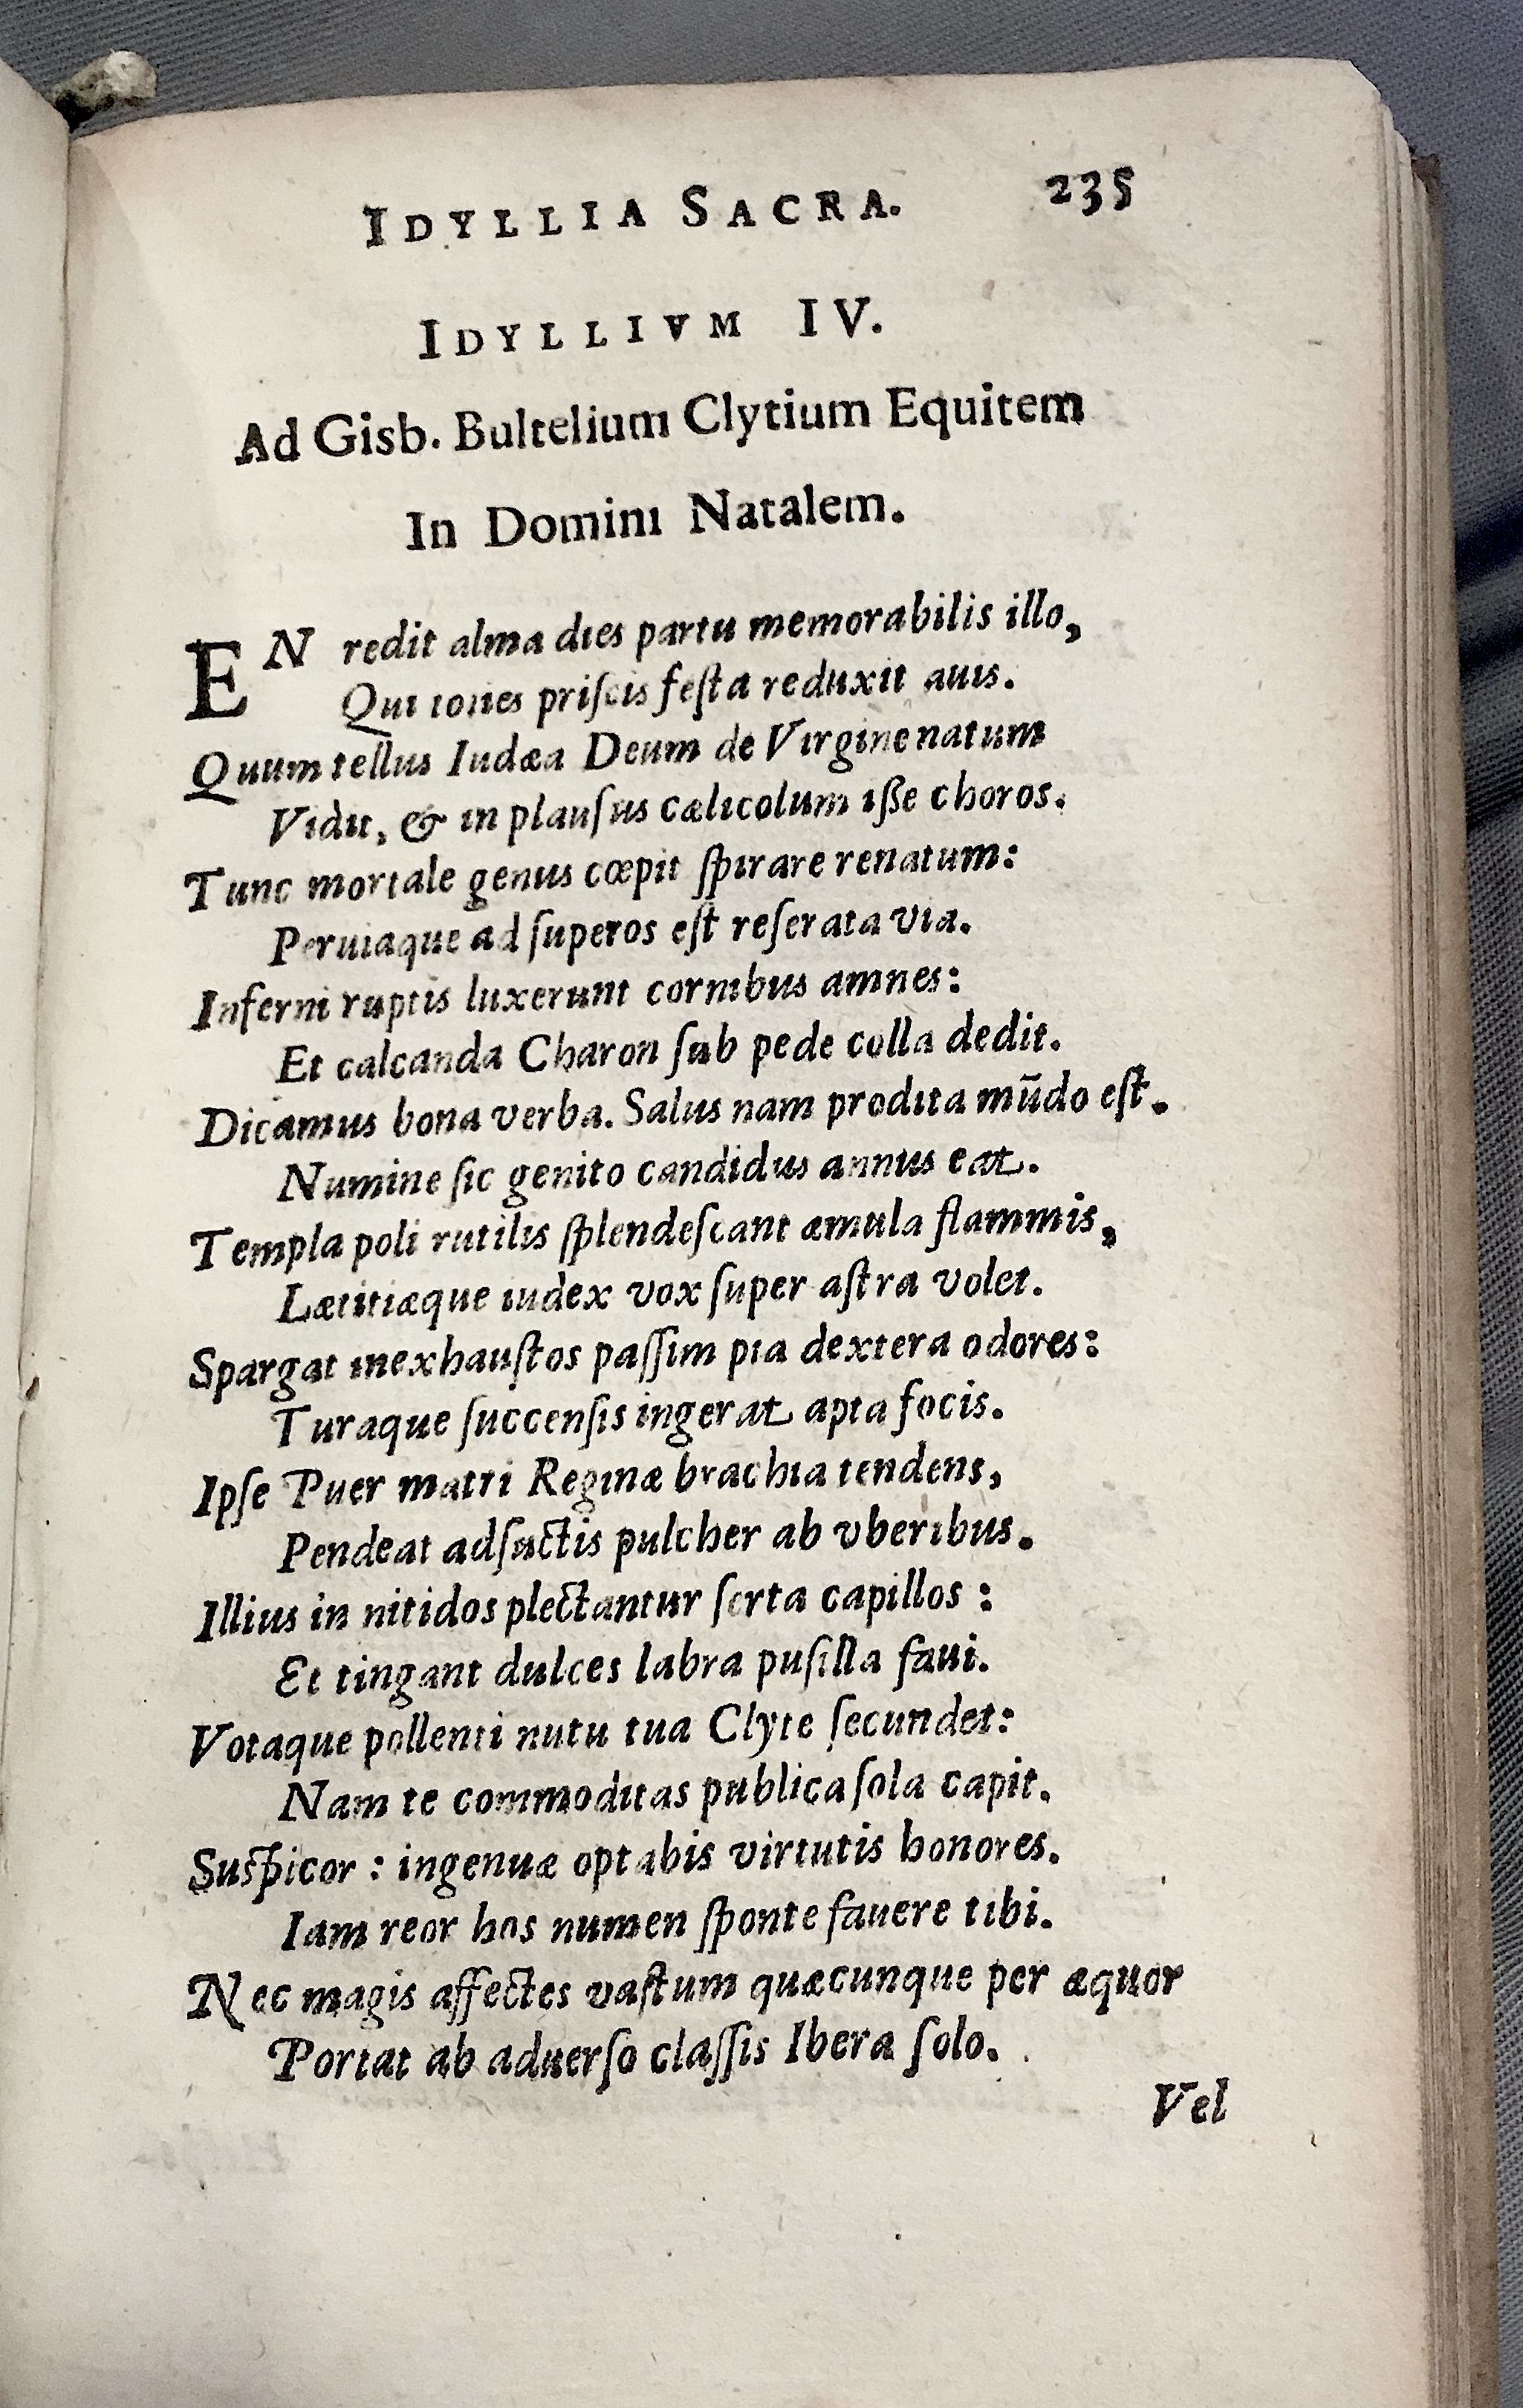 IDYLLIA SACRA. 235
IDYLLIVM IV.
Ad Gisb. Bultelium Clytium Equitem
In Domini Natalem.
EN redit alma dies partu memorabilis illo,
Qui toties priſcis feſta reduxit auis.
Quum tellus Iudæa Deum de Virgine natum
Vidit, & in plauſus cælicolum iſſe choros.
Tunc mortale genus cœpit ſpirare renatum:
Peruiaque ad ſuperos eſt reſerata via.
Inferni ruptis luxerunt cornibus amnes:
Et calcanda Charon ſub pede colla dedit.
Dicamus bona verba. Salus nam prodita mūdo eſt.
Numine ſic genito candidus annus eat.
Templa poli rutilis ſplendeſcant æmula flammis,
Lætitiæque index vox ſuper aſtra volet.
Spargat inexhauſtos paſſim pia dextera odores:
Turaque ſuccenſis ingerat apta focis.
Ipſe Puer matri Reginæ brachia tendens,
Pendeat adſuctis pulcher ab vberibus.
Illius in nitidos plectantur ſerta capillos:
Et tingant dulces labra puſilla faui.
Votaque pollenti nutu tua Clyte ſecundet:
Nam te commoditas publica ſola capit.
Suſpicor: ingenuæ optabis virtutis honores.
Iam reor hos numen ſponte fauere tibi.
Nec magis affectes vaſtum quæcunque per æquor
Portat ab aduerſo claſſis Ibera ſolo.
Vel